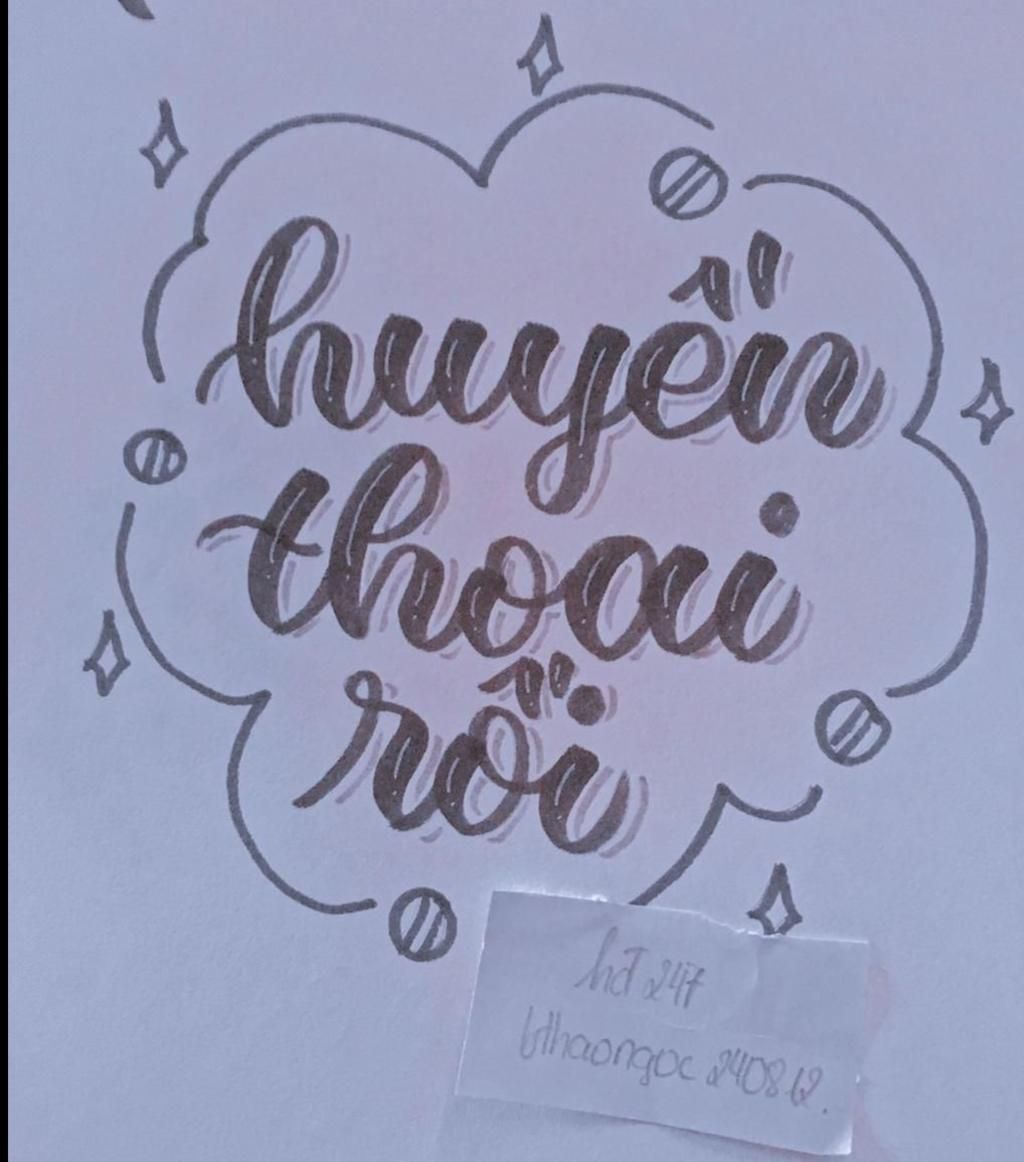 huyền
thoại
rồi
hđ 247
bthaongoc 240812.